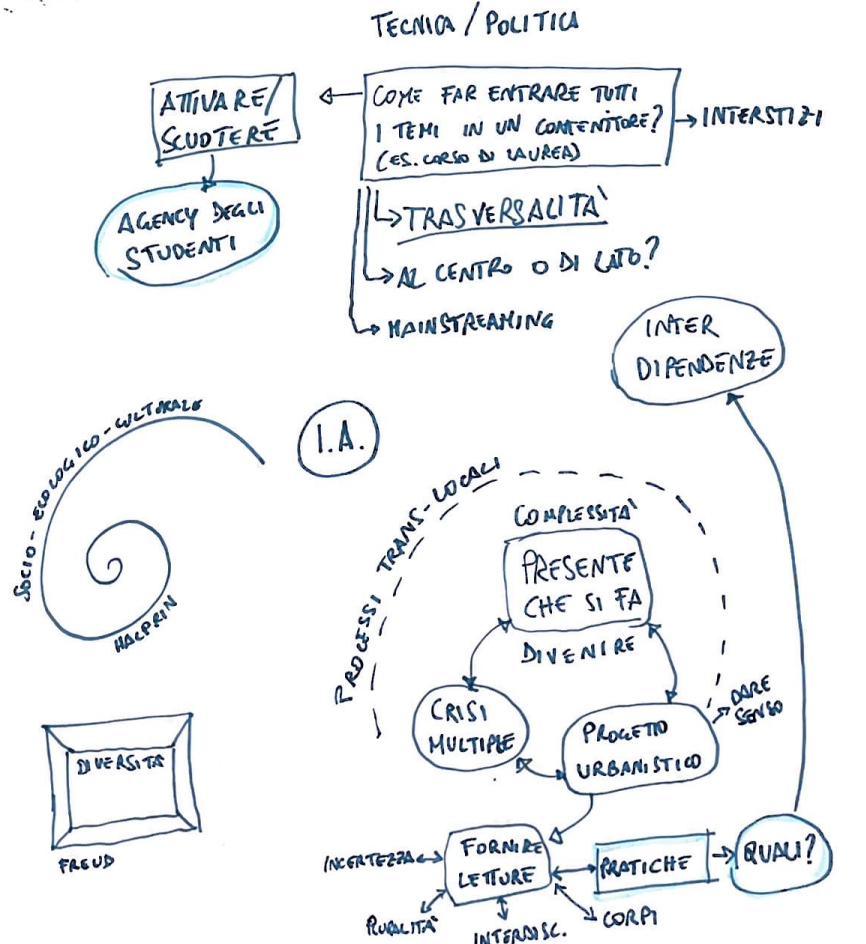 TECNICA / POLITICA
ATTIVARE/
SCUOTERE
COME FAR ENTRARE TUTTI
I TEMI IN UN CONTENITORE?
(ES. CORSO DI LAUREA)
INTERSTIZI
AGENCY DEGLI
STUDENTI
TRASVERSALITÀ
AL CENTRO O DI LATO?
MAINSTREAMING
INTER
DIPENDENZE
SOCIO-ECOLOGICO-CULTURALE
HALPRIN
I.A.
PROCESSI TRANS-LOCALI
COMPLESSITÀ
PRESENTE
CHE SI FA
DIVENIRE
CRISI
MULTIPLE
PROGETTO
URBANISTICO
DARE
SENSO
DIVERSITÀ
FREUD
INCERTEZZA
FORNIRE
LETTURE
PRATICHE
QUALI?
PLURALITÀ
INTERDISC.
CORPI